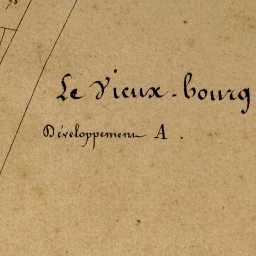 Le Vieux-bourg
Développement A.